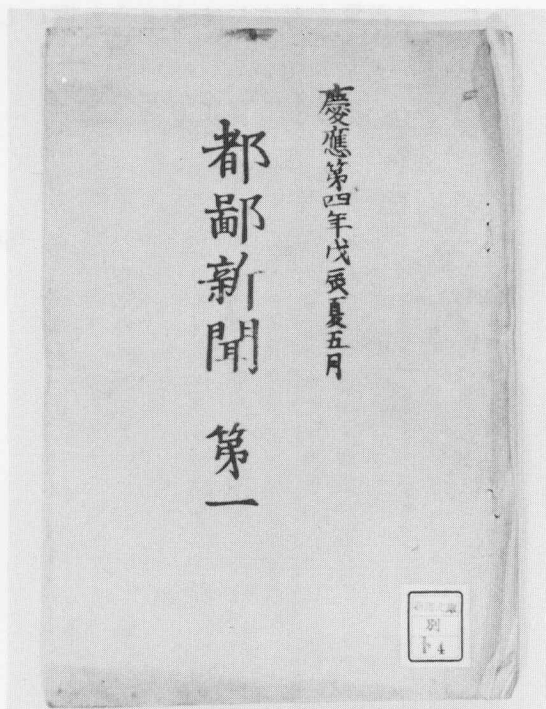 慶應第四年戊辰夏五月
都鄙新聞 第一
文庫
別
ト4